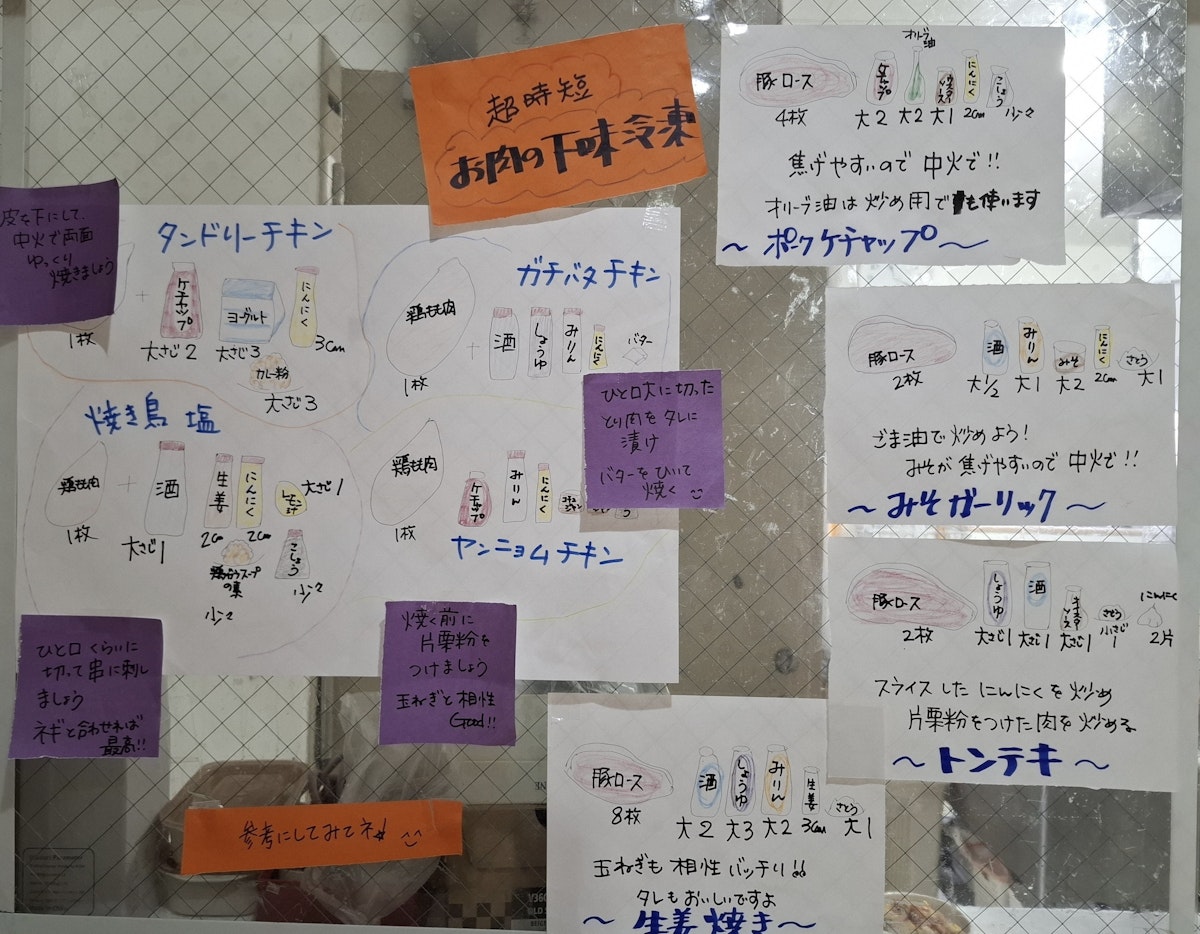 超時短
お肉の下味冷凍
皮を下にして、
中火で両面
ゆっくり
焼きましょう
タンドリーチキン
ケチャップ
ヨーグルト
にんにく
1枚
大さじ2
大さじ3
3cm
カレー粉
大さじ3
ガチバタチキン
鶏もも肉
酒
しょうゆ
みりん
にんにく
バター
1枚
ひと口大に切った
とり肉をタレに
漬け
バターをひいて
焼く
焼き鳥 塩
鶏もも肉
酒
生姜
にんにく
大さじ1
1枚
大さじ1
2cm
2cm
鶏がらスープ
の素
少々
こしょう
少々
鶏もも肉
ケチャップ
みりん
にんにく
1枚
ヤンニョムチキン
ひと口くらいに
切って串に刺し
ましょう
ネギと合わせれば
最高!!
焼く前に
片栗粉を
つけましょう
玉ねぎと相性
Good!!
参考にしてみてネ
豚ロース
ケチャップ
オリーブ油
ウスターソース
にんにく
こしょう
4枚
大2
大2
大1
2cm
少々
焦げやすいので 中火で!!
オリーブ油は炒め用でも使います
～ポークケチャップ～
豚ロース
酒
みりん
みそ
にんにく
さとう
2枚
大1/2
大1
大2
2cm
大1
ごま油で炒めよう!
みそが焦げやすいので 中火で!!
～みそガーリック～
豚ロース
しょうゆ
酒
さとう
にんにく
2枚
大さじ1
大さじ1
大さじ1
小さじ
1
2片
スライスしたにんにくを炒め
片栗粉をつけた肉を炒める
～トンテキ～
豚ロース
酒
しょうゆ
みりん
生姜
さとう
8枚
大2
大3
大2
3cm
大1
玉ねぎも 相性バッチリ!!
タレもおいしいですよ
～生姜焼き～